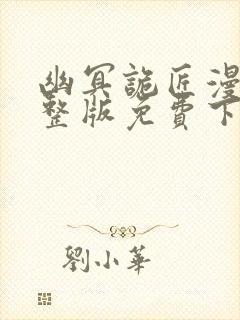 幽冥詭匠漫
整版免費下
劉小華